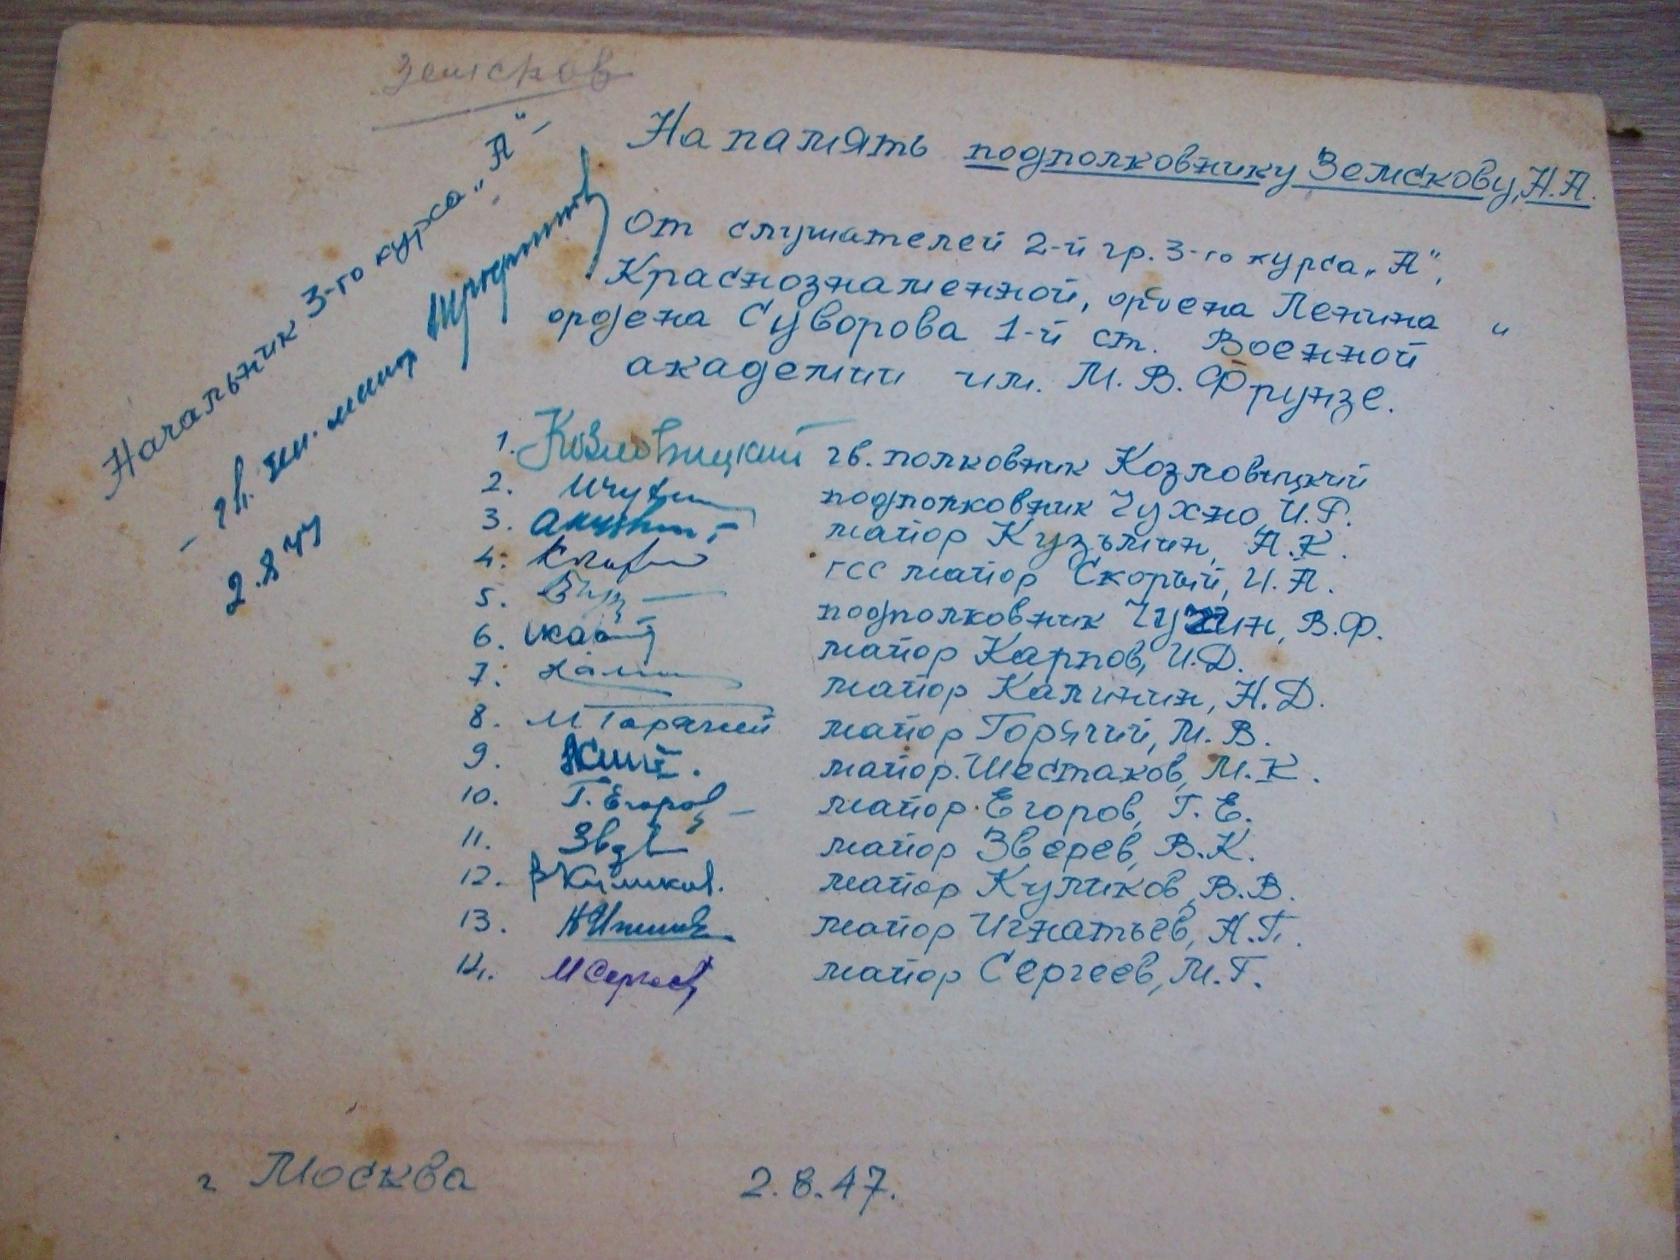 Земсков
На память подполковнику Земскову, Н.А.
От слушателей 2-й гр. 3-го курса „А",
Краснознаменной, ордена Ленина и
ордена Суворова 1-й ст. Военной
академии им. М. В. Фрунзе.
Начальник 3-го курса „А" –
– гв.
2.8 47
1. Козловицкий гв. полковник Козловицкий
2. подполковник Чухно, И.Г.
3. майор Кузьмин, А.К.
4. ГСС майор Скорый, И.А.
5. подполковник Чухин, В.Ф.
6. майор Карпов, И.Д.
7. майор Калинин, Н.Д.
8. М Горячий майор Горячий, М. В.
9. майор. Шестаков, М.К.
10. Г. Егоров – майор. Егоров, Г. Е.
11. майор Зверев, В.К.
12. В Куликов. майор Куликов, В.В.
13. майор Игнатьев, Н.П.
14. М Сергеев майор Сергеев, М.Г.
г Москва 2.8.47.